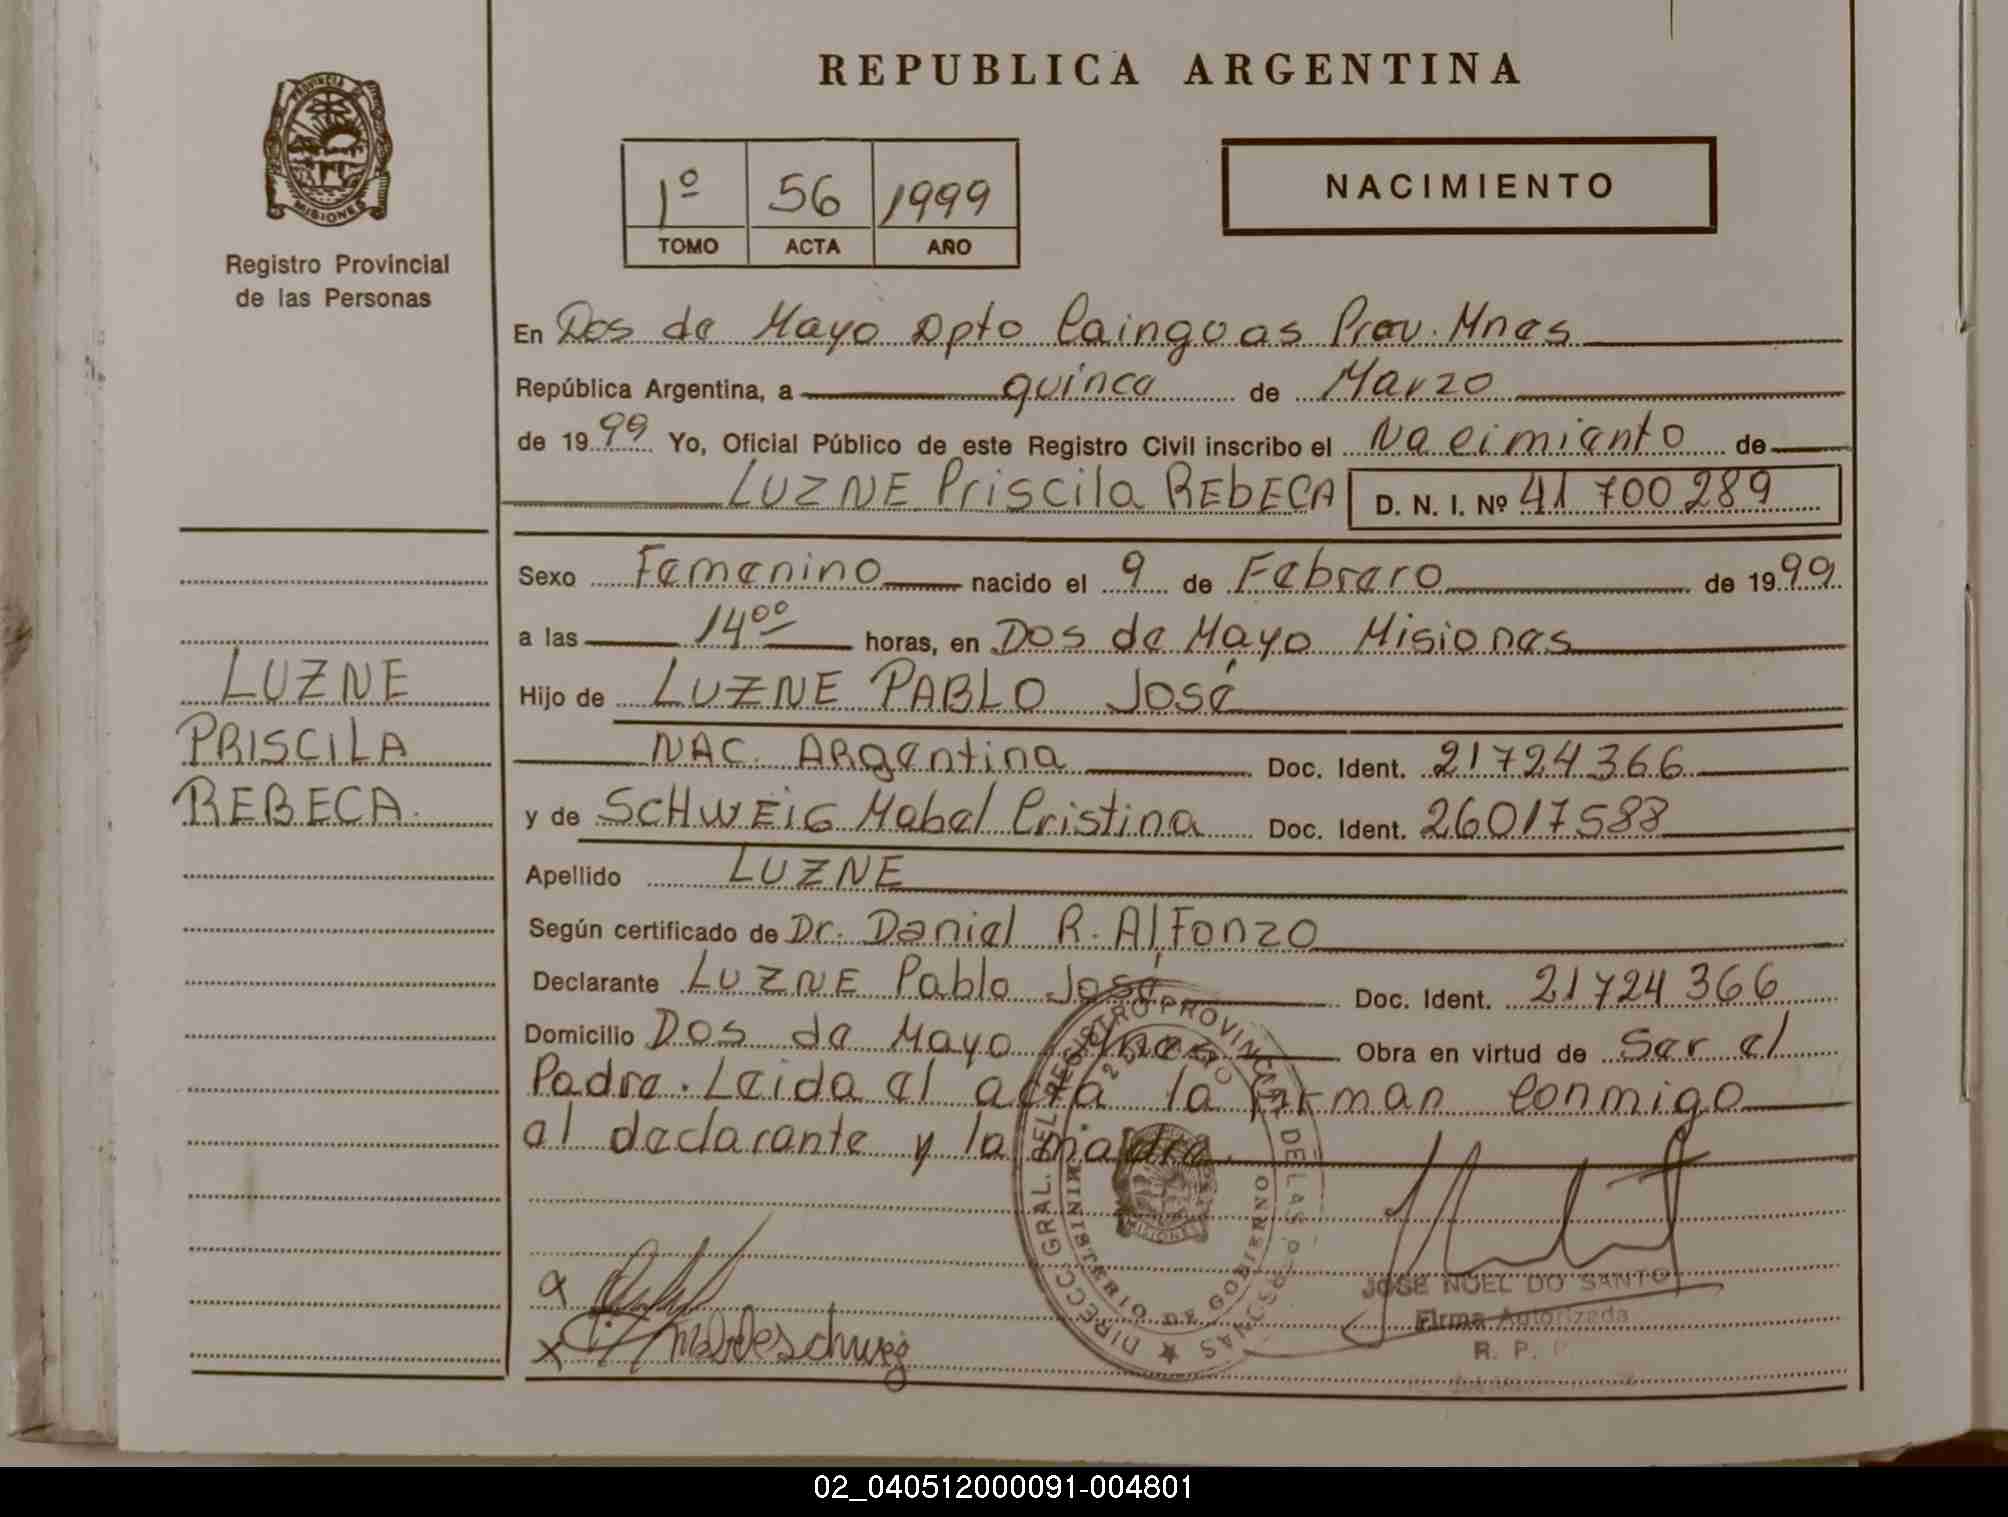 REPUBLICA ARGENTINA
PROVINCIA DE
MISIONES
Registro Provincial
de las Personas
1º 56 1999
TOMO ACTA AÑO
NACIMIENTO
En Dos de Mayo Dpto Cainguas Prov. Mnes
República Argentina, a quince de Marzo
de 1999 Yo, Oficial Público de este Registro Civil inscribo el Nacimiento de
LUZNE Priscila REbECA D. N. I. Nº 41 700 289
Sexo Femenino nacido el 9 de Febrero de 1999
a las 14⁰⁰ horas, en Dos de Mayo Misiones
LUZNE
PRISCILA
REBECA.
Hijo de LUZNE PABLO José
NAC. ARgentina Doc. Ident. 21724366
y de SCHWEiG Mabel Cristina Doc. Ident. 26017588
Apellido LUZNE
Según certificado de Dr. Daniel R. Alfonzo
Declarante LUZNE Pablo José Doc. Ident. 21724366
Domicilio Dos de Mayo Mnes Obra en virtud de Ser el
Padre. Leida el acta la firman conmigo
el declarante y la madre.
DIRECC GRAL. DEL REGISTRO PROVINCIAL DE LAS PERSONAS
MINISTERIO DE GOBIERNO
MISIONES
JOSE NOEL DO SANTO
Firma Autorizada
R. P.
x
x
02_040512000091-004801